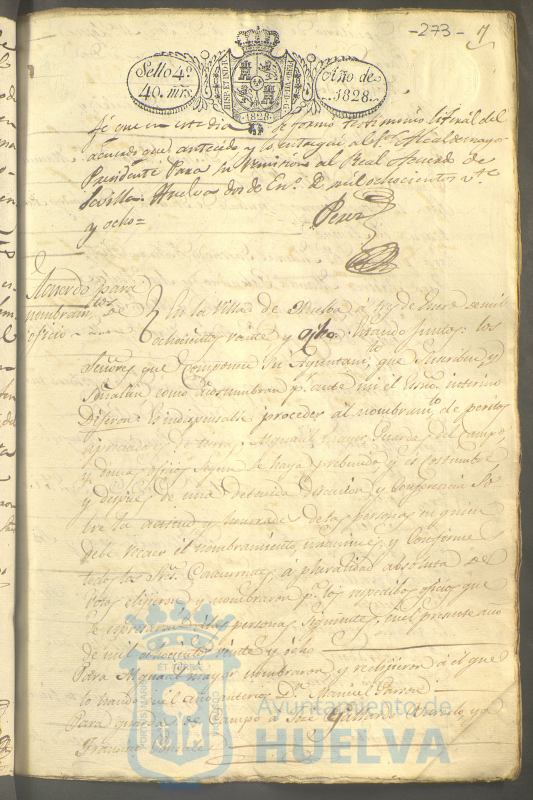 -273-
Sello 4º
40. mrs.
HISP. ET IND. R
1828
Año de
1828.
fé que en este dia se formó testimonio literal del
acuerdo que antecede y lo entregué al Sr. Alcalde mayor
Presidente para su remision al Real Acuerdo de
Sevilla. Huelva dos de Enº. D mil ochocientos vte.
y ocho=
Perez
Acuerdo para
nombramtos. de
oficios
En la Villa de Huelva á tres de Enero de mil
ochocientos veinte y ocho. Estando juntos los
Señores que componen su Ayuntamto. que suscriben y
señalan como acostumbran pr. ante mi el Esno. interino
Dijeron: Es indispensable proceder al nombramto. de peritos
apreciadores de tierra, Alguacil mayor, Guarda del Campo,
y demas oficios segun se haya prebenido y es costumbre
y despues de una detenida discusion y conferencia So
bre la actitud y honrradez de las personas en quien
debe recaer el nombramiento, unanimes, y conformes
todos los Sres. Concurrentes, á pluralidad absoluta de
votos elijieron y nombraron pa. los repetidos oficios que
se espresaran á las personas siguientes, en el presente año
de mil ochocientos veinte y ocho
Para Alguacil mayor nombraron, y reelijieron á el que
lo ha sido en el año anterior Dn. Manuel
Para guarda de Campo á José Gallardo y a
Francisco
PORTUS MARIS
ET TERRÆ
CUSTODIA
Ayuntamiento de
HUELVA